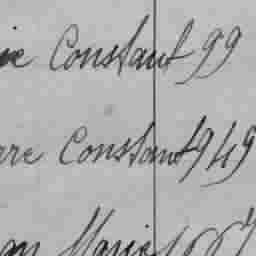 ie Constant 99
rre Constant 949
an Marie 667